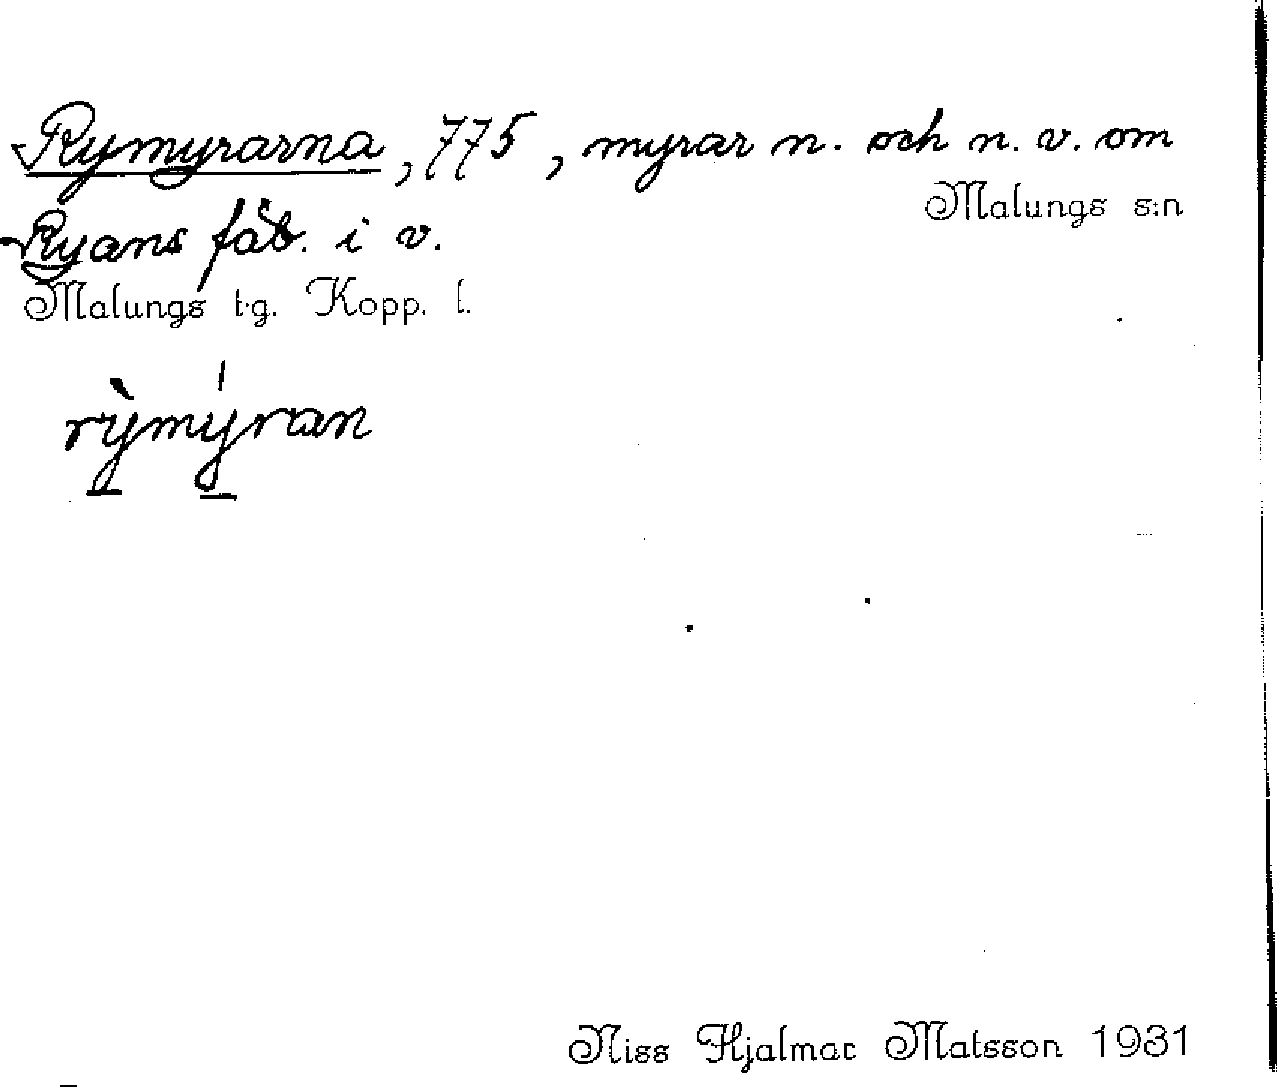 Rymyrarna, 775, myrar n. och n. v. om
Malungs s:n
Ryans fäb. i v.
Malungs t.g. Kopp. l.
rỳmýran
Niss Hjalmar Matsson 1931